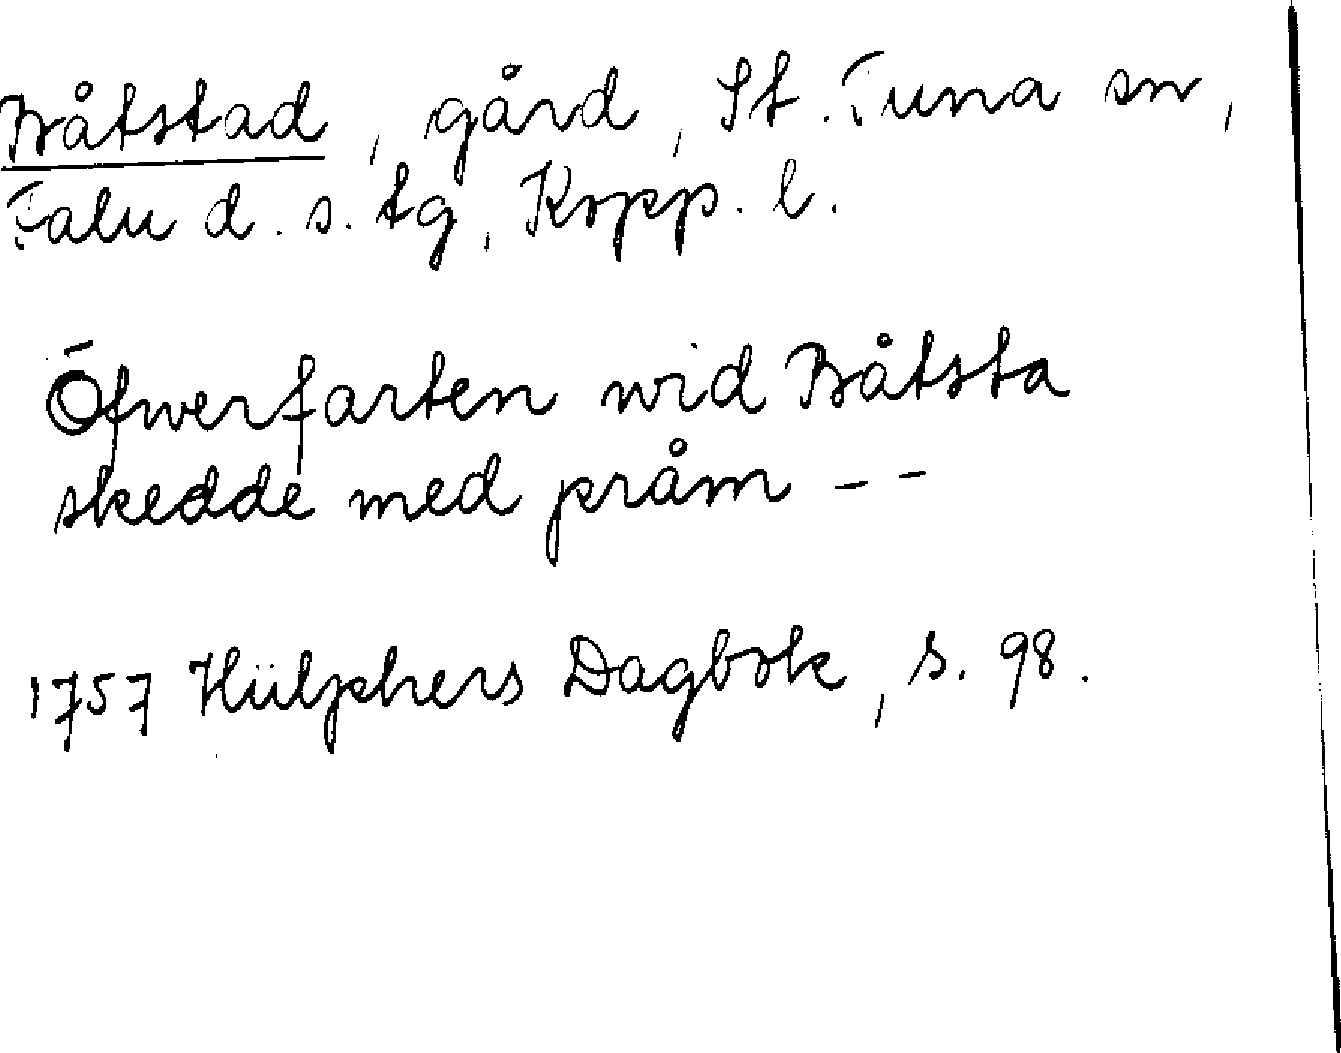 Båtstad, gård, St. Tuna sn,
Falu d. s. tg, Kopp. l.
Öfwerfarten wid Båtsta
skedde med pråm - -
1757 Hülphers Dagbok, s. 98.